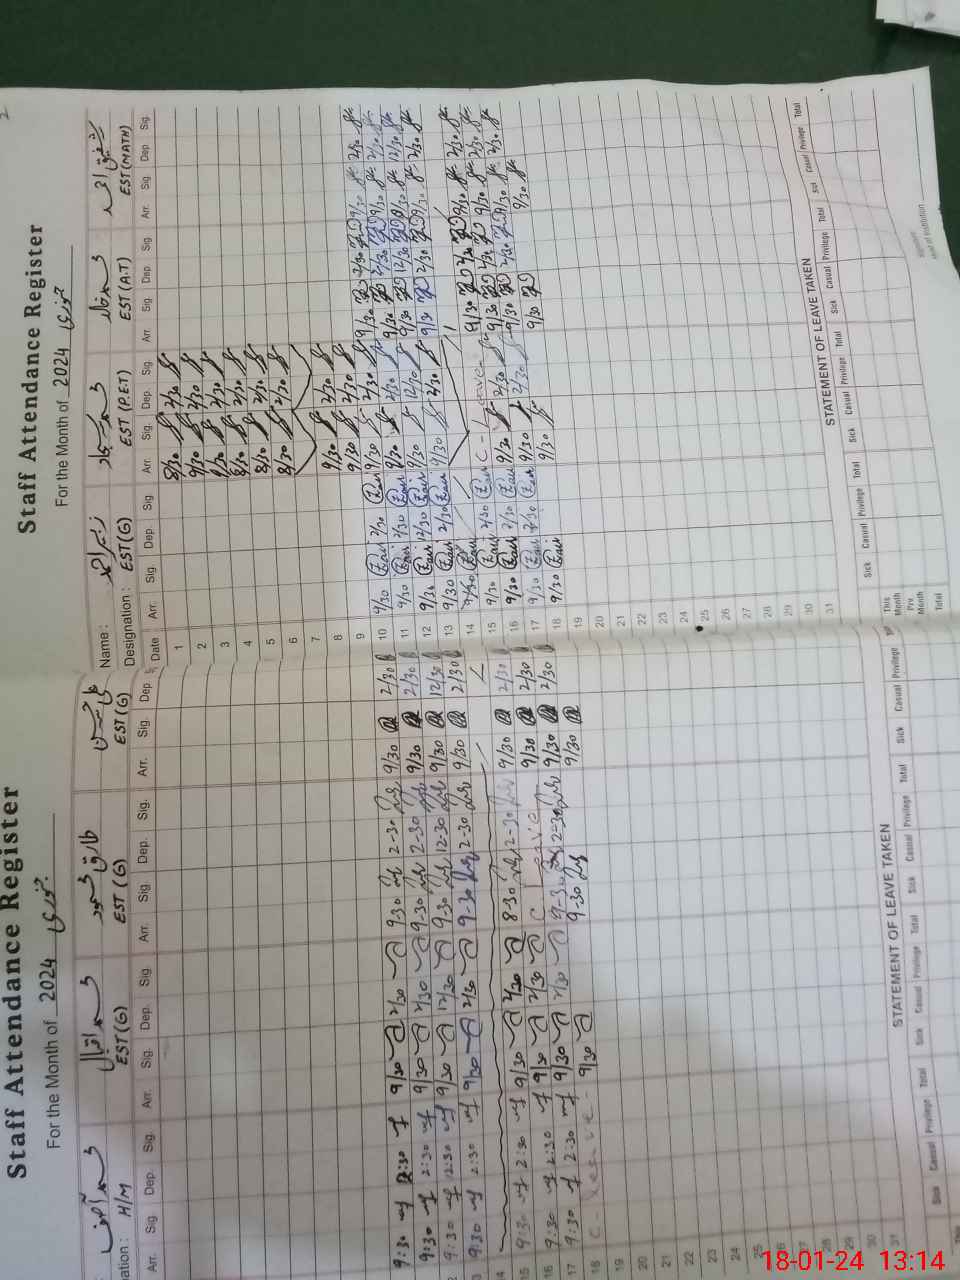 Staff Attendance Register
For the Month of 2024 جنوری
Name : زبیر احمد محمد سجاد
Designation : EST(G) EST (P.E.T) EST (A.T) EST(MATH)
Date Arr. Sig. Dep. Sig Arr Sig. Dep. Sig. Arr Sig. Dep Sig. Arr. Sig Dep Sig.
1 8/30 2/30
2 9/30 2/30
3 2/30
4 8/30 2/30
5 8/30 2/30
6 8/30 2/30
7
8 9/30 2/30
9 9/30 2/30
10 9/30 2/30 9/30 2/30 9/30 2/30 9/30 2/30
11 9/30 2/30 9/30 2/30 9/30 2/30 9/30 2/30
12 9/30 12/30 9/30 12/30 9/30 12/30 9/30 12/30
13 9/30 2/30 9/30 2/30 9/30 2/30 9/30 2/30
14
15 9/30 2/30 C-Leave 9/30 2/30 9/30 2/30
16 9/30 2/30 9/30 2/30 9/30 2/30 9/30 2/30
17 9/30 2/30 9/30 2/30 9/30 2/30 9/30 2/30
18 9/30 9/30 9/30 9/30
19
20
21
22
23
24
25
26
27
28
29
30
31
STATEMENT OF LEAVE TAKEN
Sick Casual Privilege Total Sick Casual Privilege Total Sick Casual Privilege Total Sick Casual Privilege Total
This Month
Pre. Month
Total
Head of Institution
Staff Attendance Register
For the Month of 2024 جنوری
محمد آصف محمد اقبال طارق محمود
ation : H/M EST(G) EST (G) EST(G)
Arr. Sig Dep Sig. Arr. Sig. Dep. Sig. Arr. Sig Dep. Sig. Arr. Sig. Dep
9:30 2:30 9/30 2/30 9-30 2-30 9/30 2/30
9:30 2:30 9/30 2/30 9-30 2-30 9/30 2/30
9:30 12:30 9/30 12/30 9-30 12-30 9/30 12/30
9:30 2:30 9/30 2/30 9-30 2-30 9/30 2/30
14
15 9:30 2:30 9/30 2/30 8-30 2-30 9/30 2/30
16 9:30 2:30 9/30 2/30 C Leave 9/30 2/30
17 9:30 2:30 9/30 2/30 9-30 2-30 9/30 2/30
18 C-Leave 9/30 9-30 9/30
19
20
21
22
23
24
25
26
27
28
29
30
31
STATEMENT OF LEAVE TAKEN
Sick Casual Privilege Total Sick Casual Privilege Total Sick Casual Privilege Total Sick Casual Privilege
18-01-24 13:14